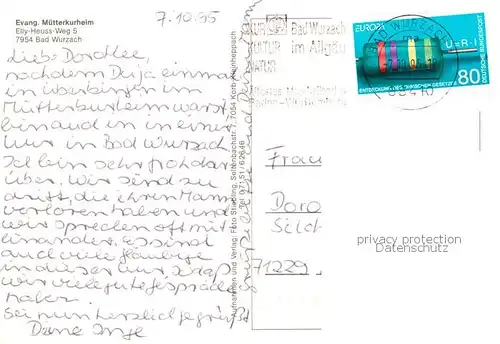 Evang. Mütterkurheim
Elly-Heuss-Weg 5
7954 Bad Wurzach
7.10.95
Liebe Dorothee,
nachdem Du ja einmal
in Überlingen im
Mütterkurheim warst,
bin auch in in einer
Kur in Bad Wurzach.
Ich bin sehr froh dar
über. Wir sind zu
dritt, die ihren Mann
verloren haben und
wir sprechen oft mit
einander. Es sind
auch viele gläubige
in dieser Kur
wir viele gute Gespräche
haben.
Sei nun herzlich gegrüßt
Deine Inge
Aufnahmen und Verlag: Foto Seitenbachstr. 7, 7054 Korb-Kleinheppach
Tel. 07151/62646
KUR Bad Wurzach
KULTUR im Allgäu
NATUR
BAD WURZACH
EUROPA
U=R·I
ENTDECKUNG DES OHMSCHEN GESETZES
80
DEUTSCHE BUNDESPOST
Frau
Doro
Silch
71229
privacy protection
Datenschutz